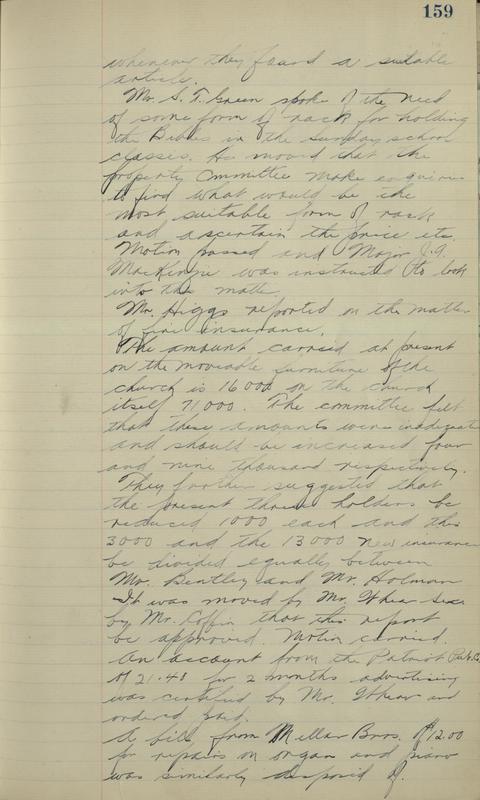 159
whenever they found a suitable
article.
Mr. S. T. Green spoke of the need
of some form of rack for holding
the Bibles in the Sunday school
classes. He moved that the
property Committee make enquiries
to find what would be the
most suitable form of rack
and ascertain the price etc.
Motion passed and Major J.A.
MacKenzie was instructed to look
into the matter.
Mr. Higgs reported on the matter
of fire insurance.
The amount carried at present
on the moveable furniture of the
church is 16000 on the church
itself 71000. The committee felt
that these amounts were inadequate
and should be increased four
and nine thousand respectively.
They further suggested that
the present three holders be
reduced 1000 each and this
3000 and the 13000 new insurance
be divided equally between
Mr. Bentley and Mr. Holman
It was moved by Mr. Whear sec.
by Mr. Coffin that this report
be approved. Motion carried.
An account from the Patriot Pub. Co.
of 21.48 for 2 months advertising
was certified by Mr. Whear and
ordered paid.
A bill from Millar Bros. of 12.00
for repairs on organ and piano
was similarly disposed of.